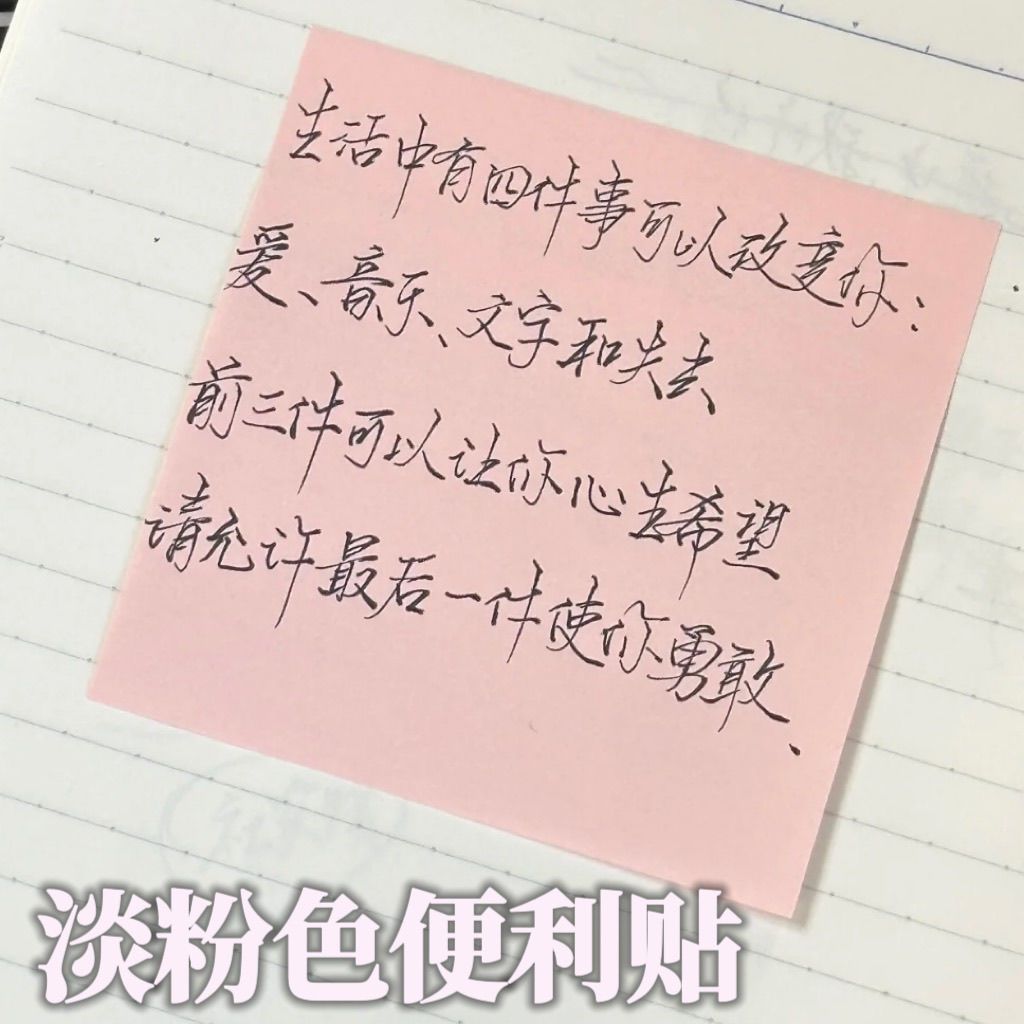 生活中有四件事可以改变你：
爱、音乐、文字和失去、
前三件可以让你心生希望
请允许最后一件使你勇敢、
淡粉色便利贴